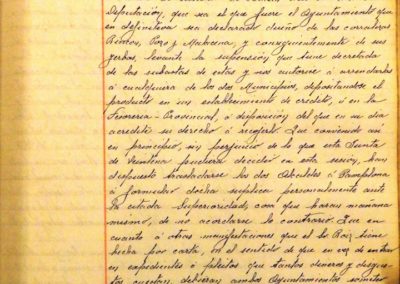 Diputación, que sea el que fuere el Ayuntamiento que
en definitiva sea declarado dueño de las corralizas
y consiguientemente de sus
yerbas, levante la suspensión que tiene decretada
de las subastas de estas y nos autorice á arrendarlas
á cualquiera de los dos Municipios, depositándose el
producto en un establecimiento de credito, ó en la
Tesoreria Provincial, á disposición del que en su dia
acredite su derecho á recojerlo. Que convenido así
en principio, sin perjuicio de lo que esta Junta
de Veintena pudiera decidir en esta sesión, han
dispuesto trasladarse los dos Alcaldes á Pamplona
á formular dicha suplica personalmente ante
la citada Superioridad, cosa que haran mañana
mismo, de no acordarse lo contrario. Que en
cuanto á otras manifestaciones que el Sr. Ruiz tiene
hecha por carta, en el sentido de que en vez de entrar
en expedientes ó pleitos que tantos dineros y disgus-
tos cuestan, debieran ambos Ayuntamientos someter